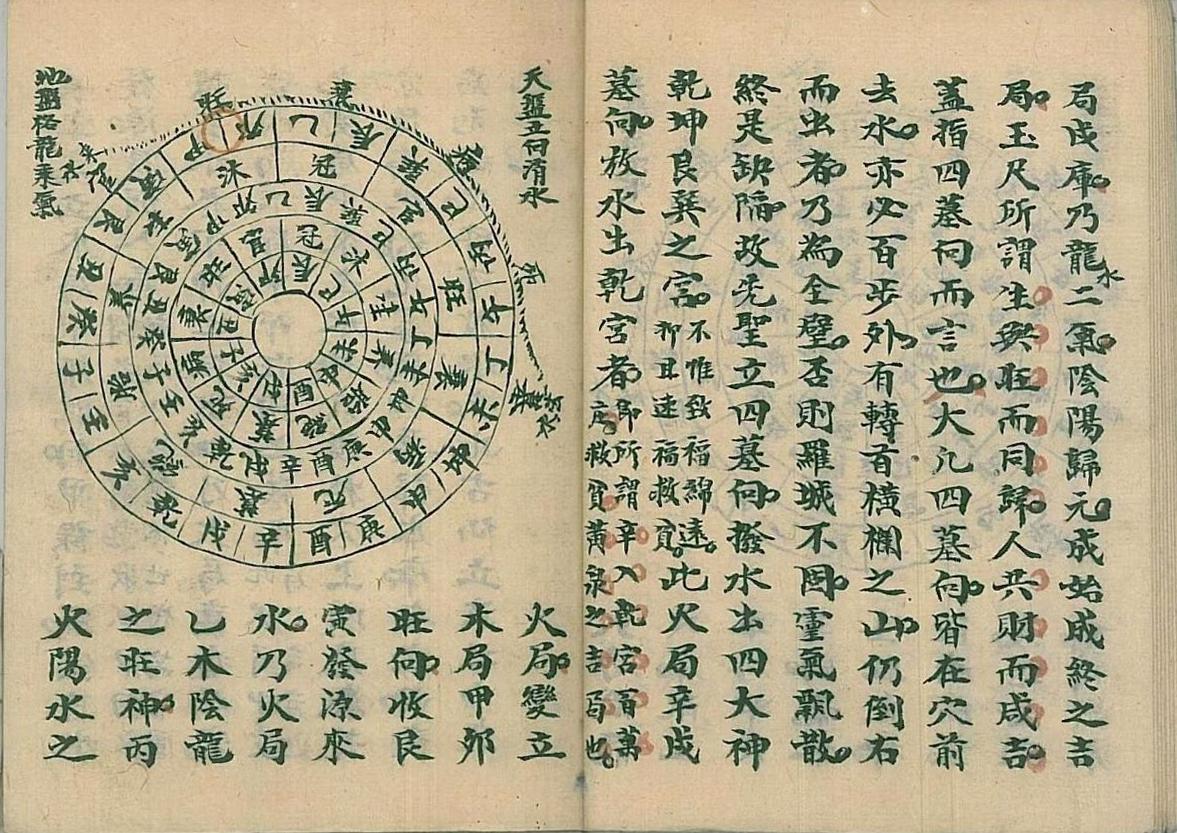 局戌庫。乃龍水二氣。陰陽歸元。成始成終之吉
局。玉尺所謂生與旺而同歸。人共財而咸吉。
蓋指四墓向而言也。大凡四墓向。皆在穴前
去水。亦必百步外。有轉首橫欄之山。仍倒右
而出者。乃為全壁。否則羅城不固。靈氣飄散。
終是缺陷。故先聖立四墓向。撥水出四大神
乾坤艮巽之宮。不惟致福綿遠。抑且速福救貧。此火局辛戌
墓向。放水出乾宮者。即所謂辛入乾宮百萬
庄。救貧黃泉之吉局也。
天盤立向消水
地盤格龍乘氣
火局。變立
木局甲卯
旺向。收艮
寅發源來
水。乃火局
乙木陰龍
之旺神。丙
火陽水之
旺
衰
病
死
墓
甲 卯 乙 辰 巽 巳 丙 午 丁 未 坤 申 庚 酉 辛 戌 乾 亥 壬 子 癸 丑 艮 寅
沐 冠 官 旺 衰 病 死 墓 絕 胎 養